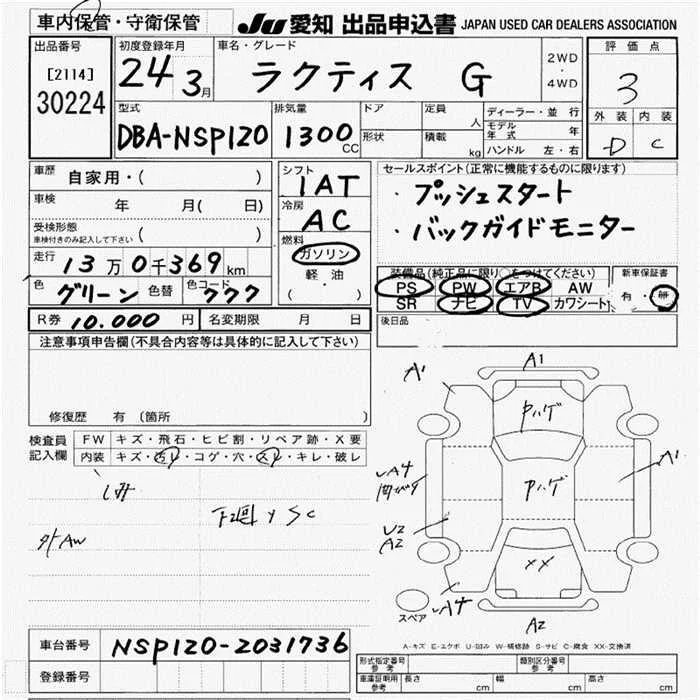 車内保管・守衛保管
JU 愛知 出品申込書 JAPAN USED CAR DEALERS ASSOCIATION
出品番号
[2114]
30224
初度登録年月
24 3月
車名・グレード
ラクティス G
2WD
・
4WD
評価点
3
外装 内装
D C
型式
DBA-NSP120
排気量
1300 CC
ドア
形状
定員 人
積載 kg
ディーラー・並行
モデル年式 年
ハンドル 左・右
車歴 自家用・( )
車検 年 月( 日)
受検形態
車検付きのみ記入して下さい ( )
走行 13万0千369km
色 グリーン 色替 色コード 777
シフト
IAT
冷房
AC
燃料
ガソリン
軽・油
( ・ )
セールスポイント(正常に機能するものに限ります)
・プッシュスタート
・バックガイドモニター
装備品(純正品に限り○をつけてください)
PS PW エアB AW
SR ナビ TV カワシート
新車保証書
有・無
後日品
R券 10.000 円 名変期限 月 日
注意事項申告欄(不具合内容等は具体的に記入して下さい)
修復歴 有 (箇所
検査員
記入欄
FW キズ・飛石・ヒビ割・リペア跡・X要
内装 キズ・汚レ・コゲ・穴・スレ・キレ・破レ
下廻 サ SC
外AW
A1
A1
中ハゲ
中ハゲ
A1
A4
U2
A2
XX
A4
A2
スペア
A-キズ E-エクボ U-凹み W-補修跡 S-サビ C-腐食 XX-交換済
車台番号 NSP120-2031736
登録番号
形式指定番号
参考
類別区分番号
参考
車庫証明用
参考
長さ cm 幅 cm 高さ cm